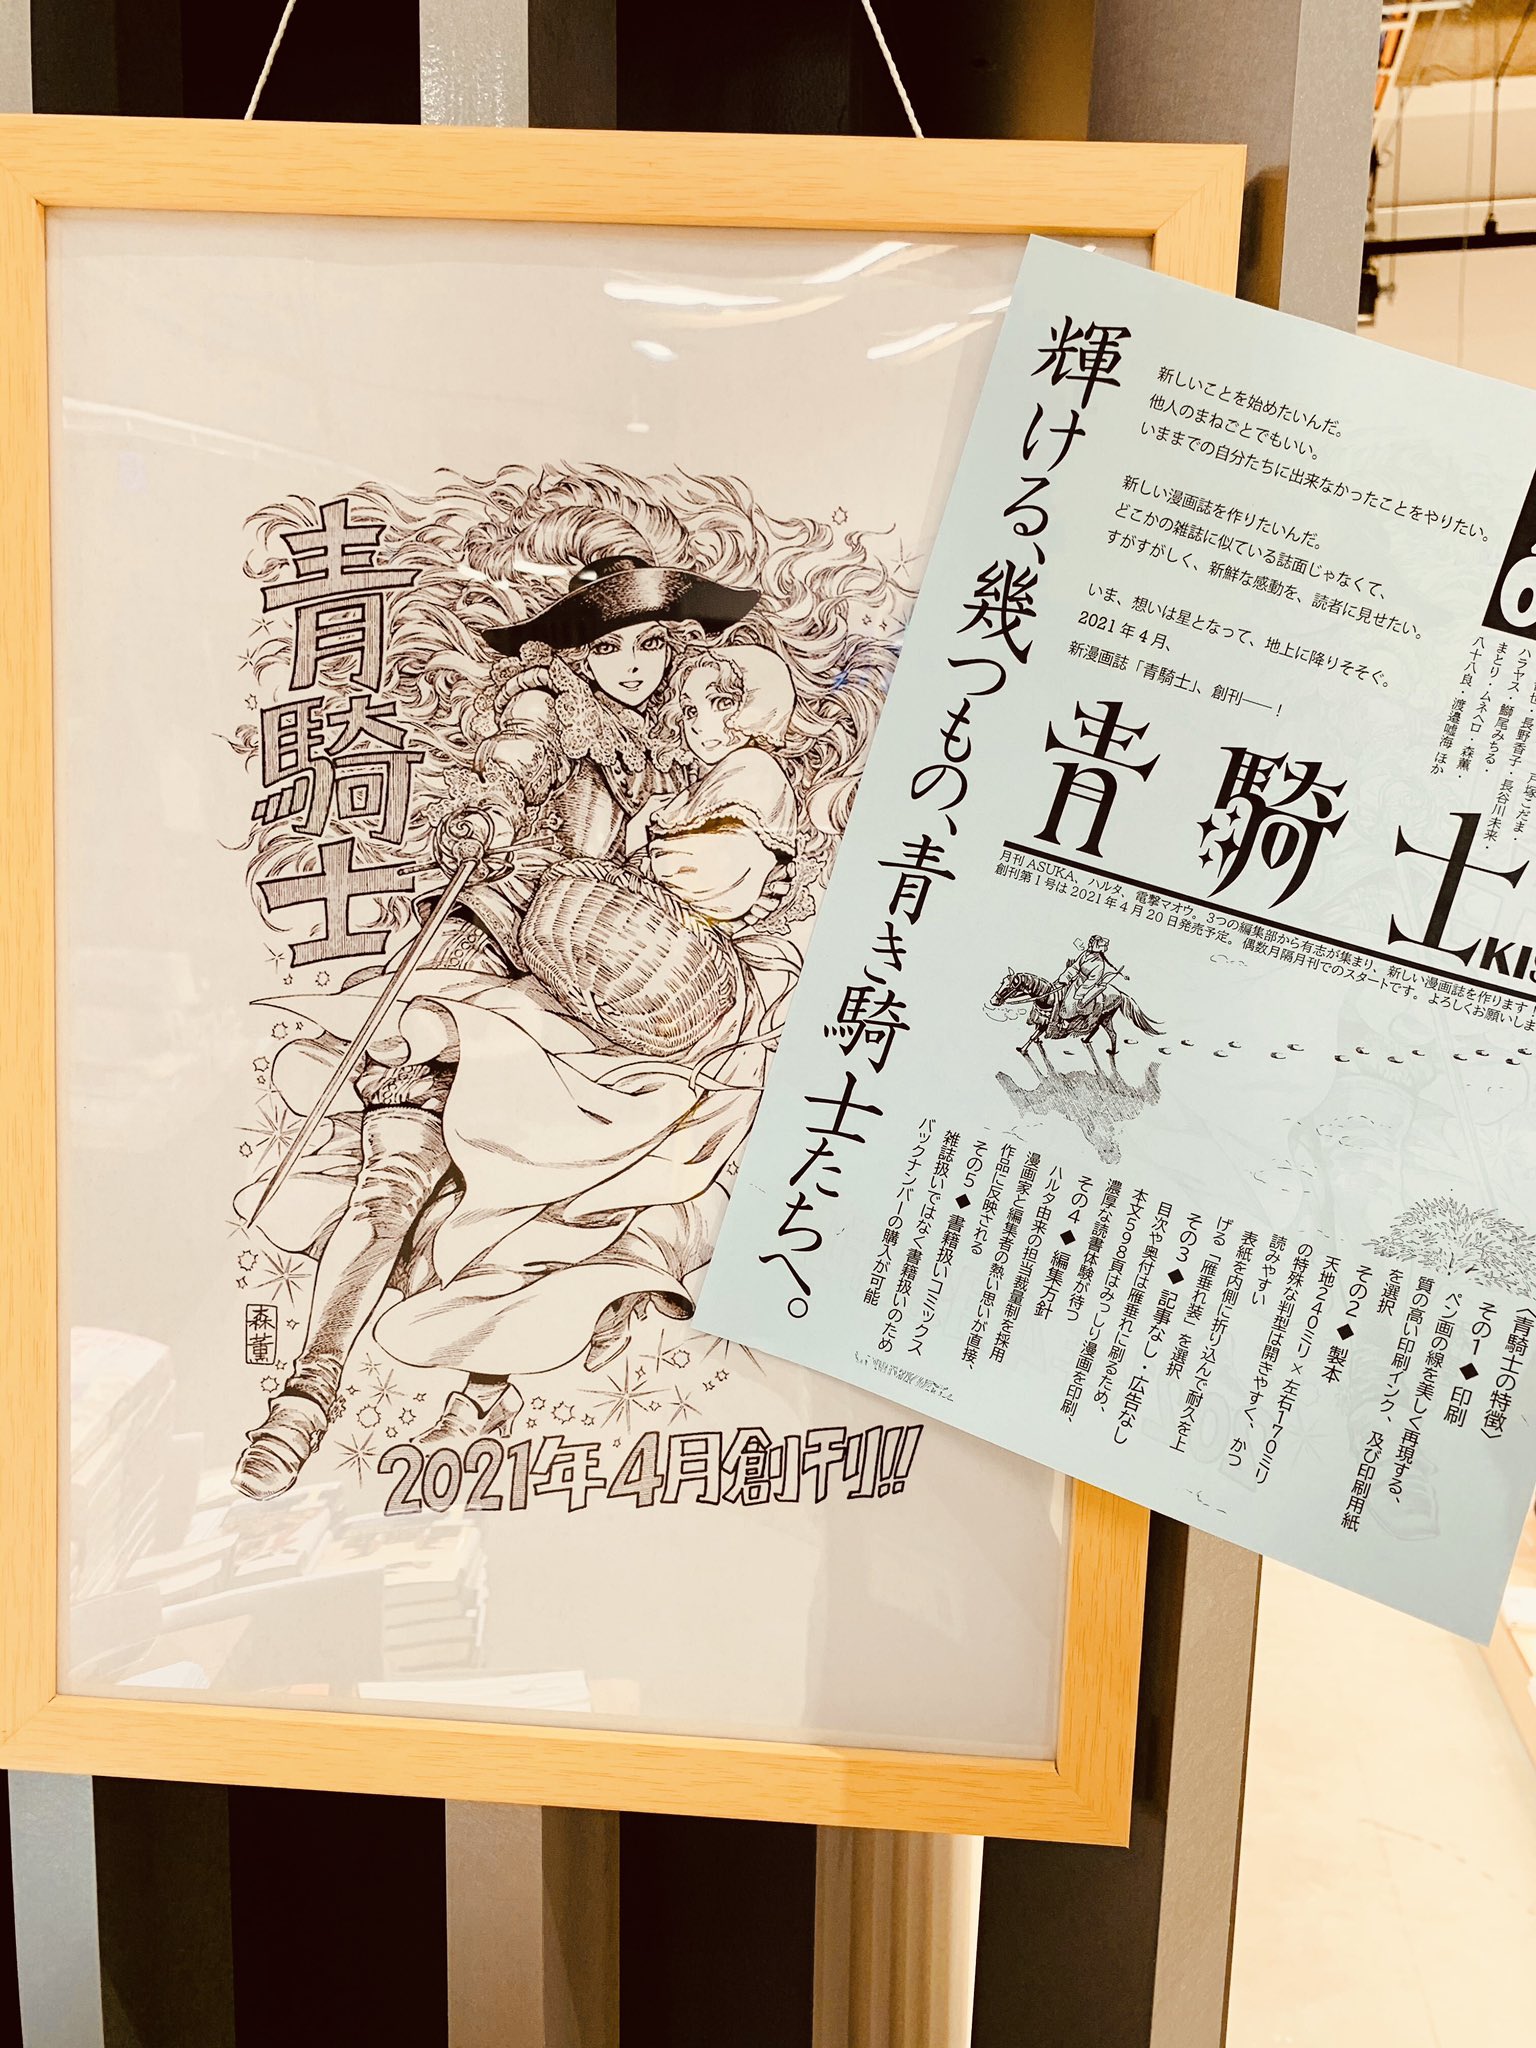 青騎士
森薫
2021年4月創刊!!
輝ける、幾つもの、青き騎士たちへ。
新しいことを始めたいんだ。
他人のまねごとでもいい。
いままでの自分たちに出来なかったことをやりたい。
新しい漫画誌を作りたいんだ。
どこかの雑誌に似ている誌面じゃなくて、
すがすがしく、新鮮な感動を、読者に見せたい。
いま、想いは星となって、地上に降りそそぐ。
2021年4月、
新漫画誌「青騎士」、創刊──！
戸塚こだま・
長野香子・長谷川未来・
ハラヤス・鰤尾みちる・
まとり・ムネヘロ・森薫・
八十八良・渡邉嘘海ほか
青騎士
KIS
月刊ASUKA、ハルタ、電撃マオウ。3つの編集部から有志が集まり、新しい漫画誌を作ります！
創刊第1号は2021年4月20日発売予定。偶数月隔月刊でのスタートです。よろしくお願いしま
〈青騎士の特徴〉
その1◆印刷
ペン画の線を美しく再現する、
質の高い印刷インク、及び印刷用紙
を選択
その2◆製本
天地240ミリ×左右170ミリ
の特殊な判型は開きやすく、かつ
読みやすい
表紙を内側に折り込んで耐久を上
げる「雁垂れ装」を選択
その3◆記事なし・広告なし
目次や奥付は雁垂れに刷るため、
本文598頁はみっしり漫画を印刷、
濃厚な読書体験が待つ
その4◆編集方針
ハルタ由来の担当裁量制を採用
漫画家と編集者の熱い思いが直接、
作品に反映される
その5◆書籍扱いコミックス
雑誌扱いではなく書籍扱いのため
バックナンバーの購入が可能